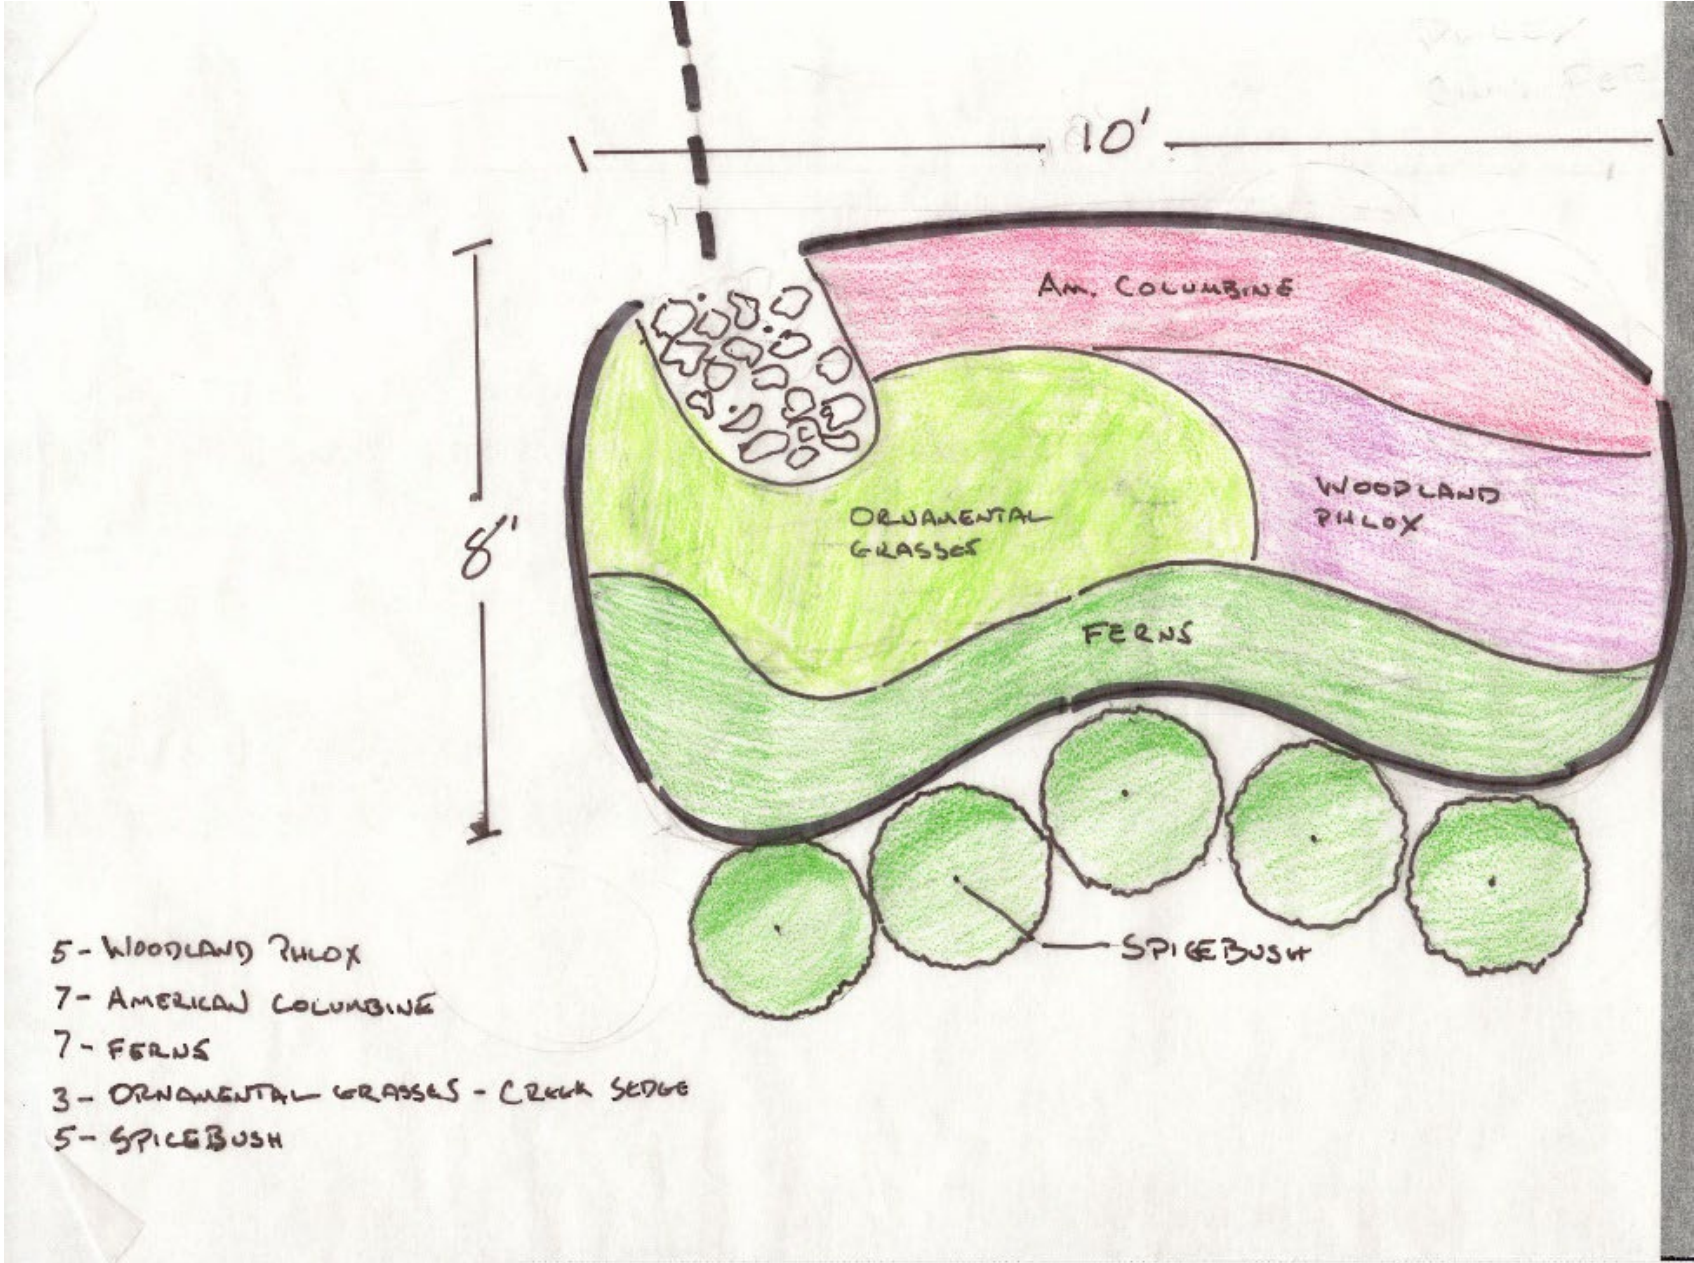 10'
AM. COLUMBINE
8'
WOODLAND
PHLOX
ORNAMENTAL
GRASSES
FERNS
SPICEBUSH
5- WOODLAND PHLOX
7- AMERICAN COLUMBINE
7- FERNS
3- ORNAMENTAL GRASSES - CREEK SEDGE
5- SPICEBUSH